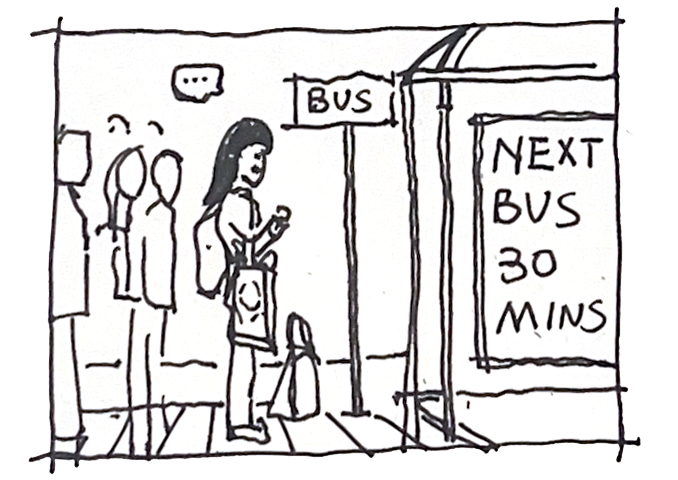 ...
BUS
NEXT
BUS
30
MINS